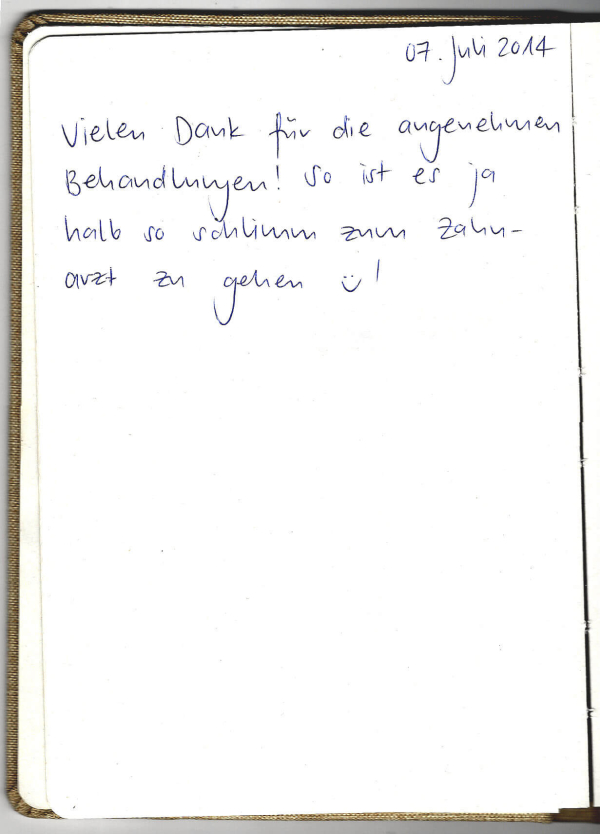 07. Juli 2014
Vielen Dank für die angenehmen
Behandlungen! So ist es ja
halb so schlimm zum Zahn-
arzt zu gehen ü!